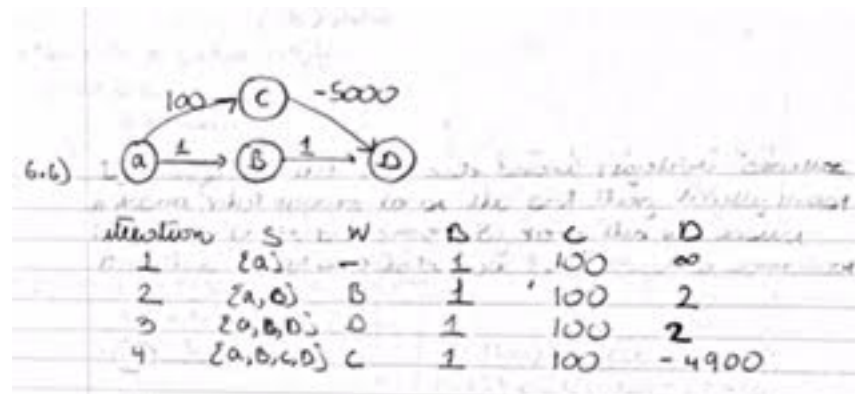 100 C -5000
6.6) a 1 B 1 D
iteration S W B C D
1 {a} - 1 100 ∞
2 {a,B} B 1 100 2
3 {a,B,D} D 1 100 2
4 {a,B,C,D} C 1 100 -4900